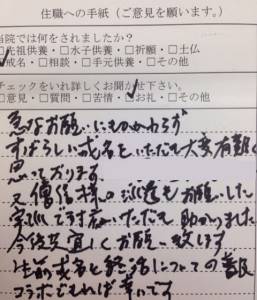 住職への手紙（ご意見を願います。）
当院では何をされましたか？
□先祖供養・□水子供養・□祈願・□土仏
□戒名・□相談・□手元供養・□その他
チェックをいれ詳しくお聞かせ下さい。
□意見・□質問・□苦情・□お礼・□その他
急なお願いにもかかわらず
すばらしい戒名をいただき大変有難く
思っております。
又僧侶様の派遣もお願いした
いただき 助かりました
今後共宜しくお願い致します
生前戒名と終活についての普及
コラボでもれば幸いです